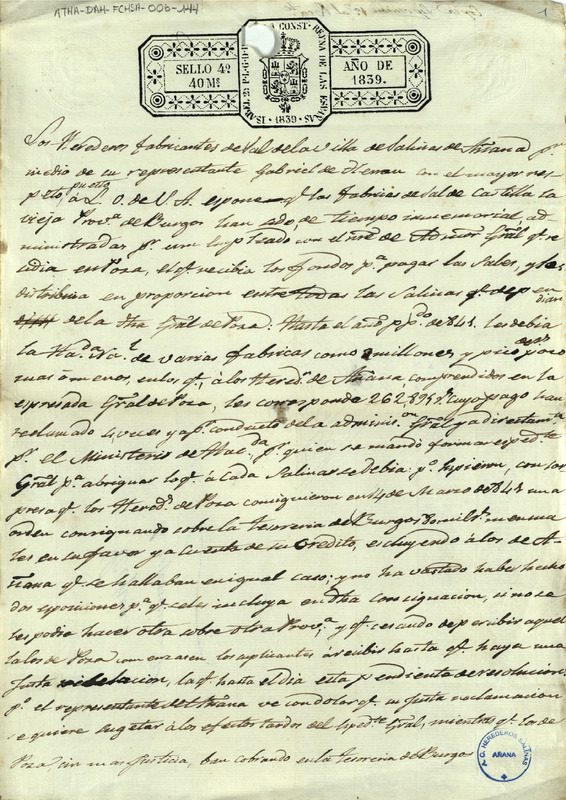 ATHA-DAH-FCHSA-006-144
1
SELLO 4º
40 Ms
AÑO DE
1839.
ISABEL 2ª P. L. G. D. D. Y LA CONST. REYNA DE LAS ESPAÑAS · 1839 ·
Los Herederos fabricantes de Sal de la Villa de Salinas de Añana pr.
medio de su representante Gabriel de Heran con el mayor res-
peto, puesto a L. O. de V. A. espone q.e las fabricas de Sal de Castilla la
vieja Prov.a de Burgos han sido, de tiempo inmemorial, ad-
ministradas pr. un empleado con el nre. de Admor. Gral q.e re-
cidia en Poza, el q.e recibia los fondos p.a pagar las Sales, y los
distribuia en proporcion entre todas las Salinas q.e depen
dian
de la dha Gral de Poza: Hasta el año pp.do de 841. les debia
la Ha.da Na.l de varias fabricas como 2 millones y pico poco
mas ó menos, en los q.e á los Hered.s de Añana, comprendidos en la
espresada Gral de Poza, les corresponde 262,895 r. cuyo pago han
reclamado y a pr. conducto de la adminis.on Gral y a directam.te
pr. el Ministerio de Hac.da pr. quien se mandó formar esped.te
Gral p.a abriguar lo q.e á cada Salinas se debia: y supieron, con sor
presa q.e los Hered.s de Poza consiguieron en 14 de Marzo de 843 una
orden consignando sobre la tesoreria de Burgos 30 mil r.s mensua
les en su favor y a cuenta de su Credito, escluyendo á los de A-
ñana q.e se hallaban en igual caso; y no ha vastado haber hecho
dos esposiciones p.a q.e se les incluya en dha consignacion, si no se
les podia hacer otra sobre otra Prov.a, y q.e cesando de percibir aquel
la los de Poza comenzasen los suplicantes á recibir hasta q.e haya una
justa nibelacion, la q.e hasta el dia esta pendiente de resolucion
pr. el representante de Añana ve con dolor q.e su justa reclamacion
se quiere sugetar á los efectos tardos del Esped.te Gral, mientras q.e los de
Poza sin mas justicia, han cobrando en la tesoreria de Burgos
A. C. HEREDEROS SALINAS
AÑANA